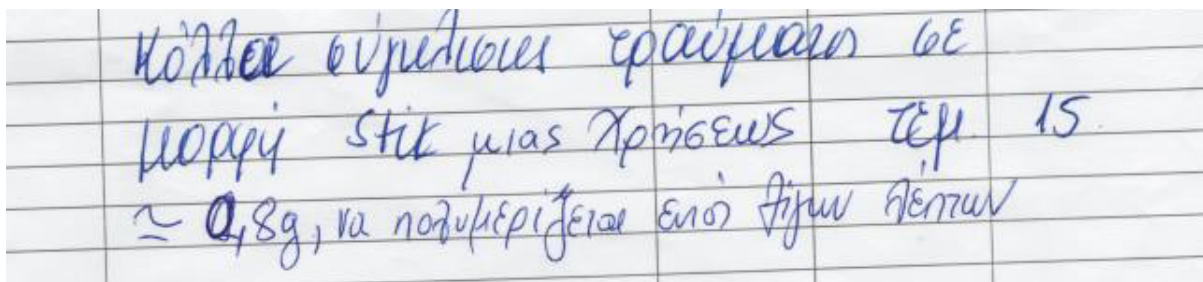 Κόλλα σύγκλισης τραύματος σε
μορφή stik μιας χρήσεως τεμ. 15
≃ 0,8g, να πολυμερίζεται εντός λίγων λεπτών